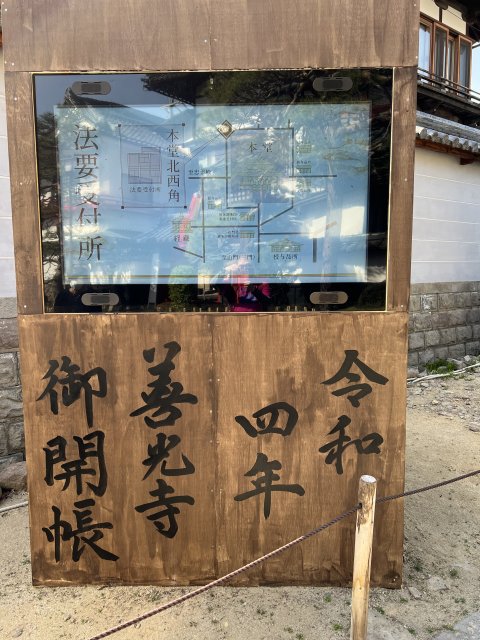 法要受付所
本堂北西角
法要受付所
本堂
経蔵
授与品所
令和
四年
善光寺
御開帳